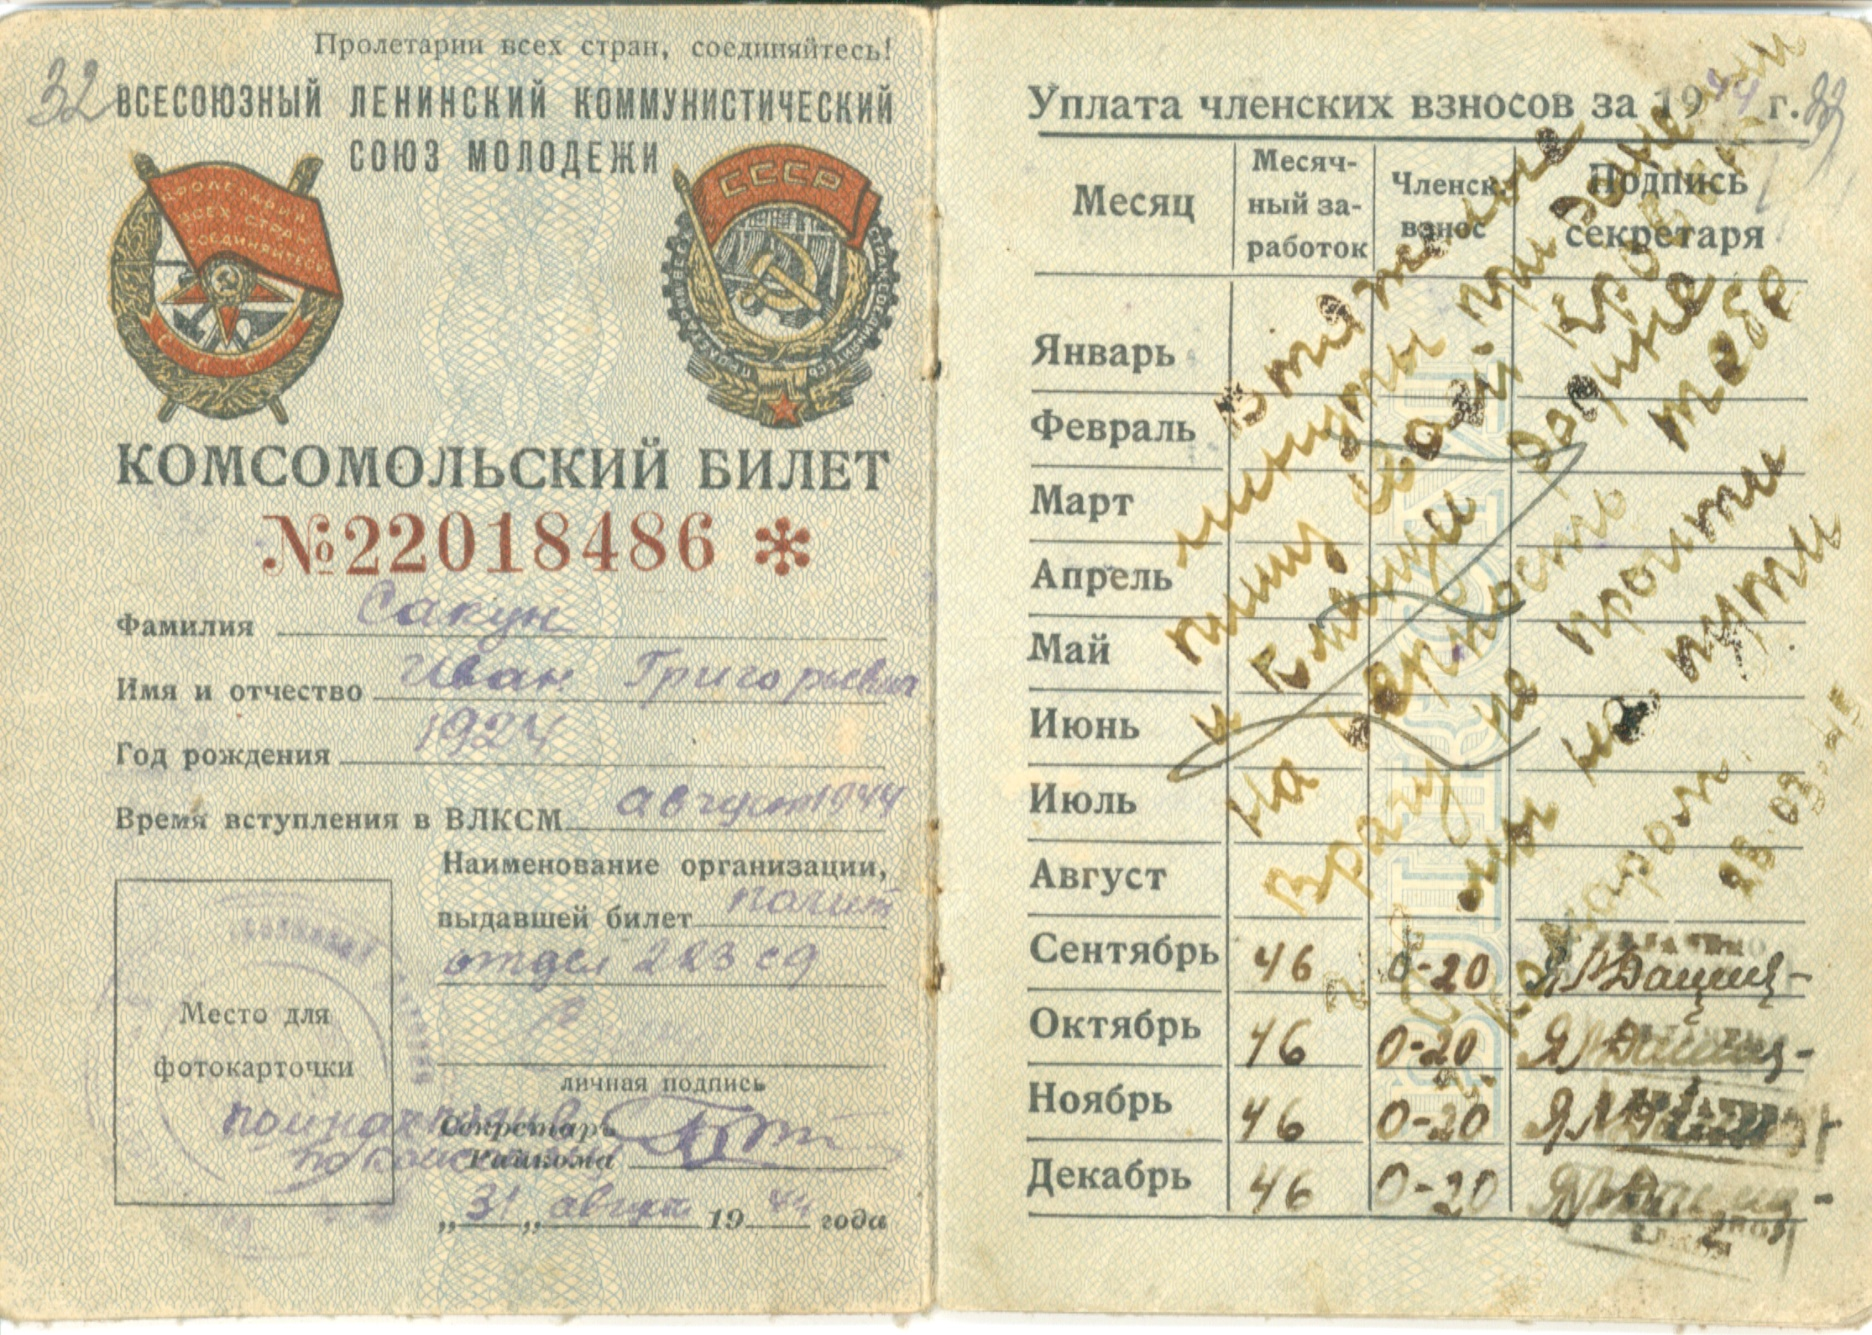 32
Пролетарии всех стран, соединяйтесь!
ВСЕСОЮЗНЫЙ ЛЕНИНСКИЙ КОММУНИСТИЧЕСКИЙ
СОЮЗ МОЛОДЕЖИ
ПРОЛЕТАРИИ
ВСЕХ СТРАН
СОЕДИНЯЙТЕСЬ
СССР
СССР
КОМСОМОЛЬСКИЙ БИЛЕТ
№22018486 *
Фамилия Сакун
Имя и отчество Иван Григорьевич
Год рождения 1924
Время вступления в ВЛКСМ август 1944
Наименование организации,
выдавшей билет полит
отдел 223 сд
Место для
фотокарточки
личная подпись
Секретарь
Райкома
„31„ август 1944 года
33
Уплата членских взносов за 1944 г.
Месяц
Месяч-
ный за-
работок
Членск.
взнос
Подпись
секретаря
Январь
Февраль
Март
Апрель
Май
Июнь
Июль
Август
Сентябрь 46 0-20
Октябрь 46 0-20
Ноябрь 46 0-20
Декабрь 46 0-20
В тяжелые
минуты при ранении
пишу свой кровью
и клянусь родине
на верность тебе
Врагу не пройти
мы на пути